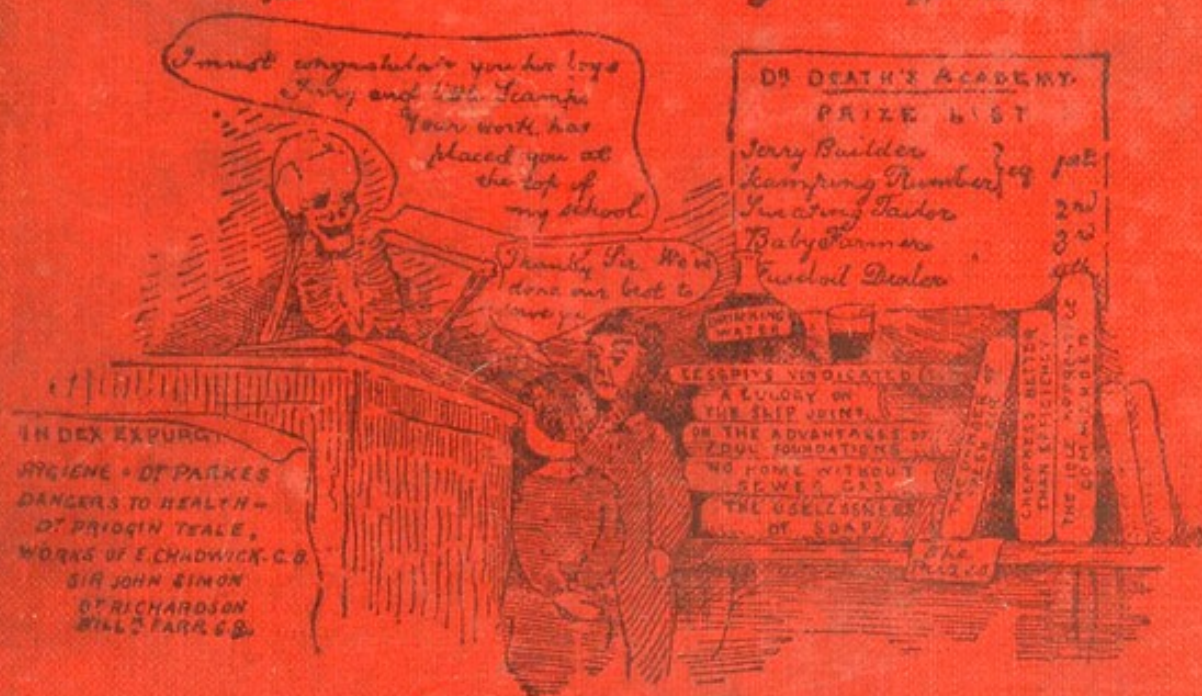 I must congratulate you two boys
Jerry and little Scamps
Your work has
placed you at
the top of
my school
Thanky Sir We've
done our best to
DR DEATH'S ACADEMY.
PRIZE LIST
Jerry Builder
Scamping Plumber } eq 1st
Sweating Tailor 2nd
Baby Farmer 3rd
Fusel oil Dealer 4th
DRINKING
WATER
CESSPITS VINDICATED
A EULOGY ON
THE SLIP JOINT
ON THE ADVANTAGES OF
FOUL FOUNDATIONS
NO HOME WITHOUT
SEWER GAS
THE USELESSNESS
OF SOAP
CHEAPNESS BETTER
THAN EFFICIENCY
THE IDLE APPRENTICE
COMMENDED
The
Prizes
INDEX EXPURG
HYGIENE - DR PARKES
DANGERS TO HEALTH -
DR PRIDGIN TEALE,
WORKS OF E. CHADWICK. C.B.
SIR JOHN SIMON
DR RICHARDSON
WILLM FARR C.B.